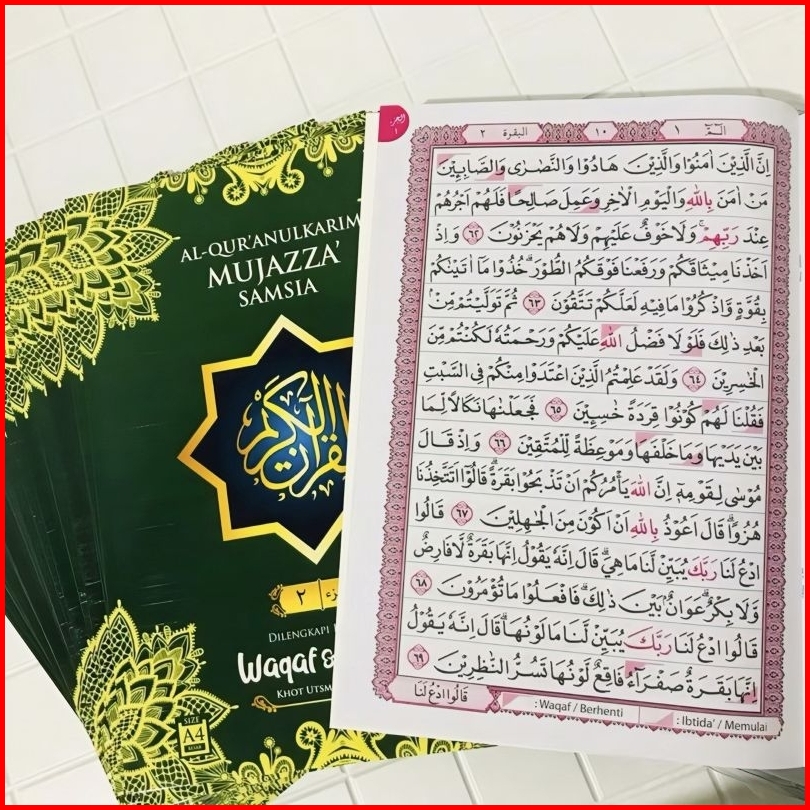 AL-QUR'ANULKARIM
MUJAZZA'
SAMSIA
القرآن الكريم
٢
DILENGKAPI
Waqaf &
KHOT UTSM
SIZE
A4
الجزء
١
البقرة ٢
١٠
الۤمّۤ ١
اِنَّ الَّذِيْنَ اٰمَنُوْا وَالَّذِيْنَ هَادُوْا وَالنَّصٰرٰى وَالصَّابِـِٕيْنَ
مَنْ اٰمَنَ بِاللّٰهِ وَالْيَوْمِ الْاٰخِرِ وَعَمِلَ صَالِحًا فَلَهُمْ اَجْرُهُمْ
عِنْدَ رَبِّهِمْۚ وَلَا خَوْفٌ عَلَيْهِمْ وَلَا هُمْ يَحْزَنُوْنَ ٦٢ وَاِذْ
اَخَذْنَا مِيْثَاقَكُمْ وَرَفَعْنَا فَوْقَكُمُ الطُّوْرَۗ خُذُوْا مَآ اٰتَيْنٰكُمْ
بِقُوَّةٍ وَّاذْكُرُوْا مَا فِيْهِ لَعَلَّكُمْ تَتَّقُوْنَ ٦٣ ثُمَّ تَوَلَّيْتُمْ مِّنْۢ
بَعْدِ ذٰلِكَ فَلَوْلَا فَضْلُ اللّٰهِ عَلَيْكُمْ وَرَحْمَتُهٗ لَكُنْتُمْ مِّنَ
الْخٰسِرِيْنَ ٦٤ وَلَقَدْ عَلِمْتُمُ الَّذِيْنَ اعْتَدَوْا مِنْكُمْ فِى السَّبْتِ
فَقُلْنَا لَهُمْ كُوْنُوْا قِرَدَةً خٰسِـِٕيْنَ ٦٥ فَجَعَلْنٰهَا نَكَالًا لِّمَا
بَيْنَ يَدَيْهَا وَمَا خَلْفَهَا وَمَوْعِظَةً لِّلْمُتَّقِيْنَ ٦٦ وَاِذْ قَالَ
مُوْسٰى لِقَوْمِهٖٓ اِنَّ اللّٰهَ يَأْمُرُكُمْ اَنْ تَذْبَحُوْا بَقَرَةًۗ قَالُوْٓا اَتَتَّخِذُنَا
هُزُوًاۗ قَالَ اَعُوْذُ بِاللّٰهِ اَنْ اَكُوْنَ مِنَ الْجٰهِلِيْنَ ٦٧ قَالُوا
ادْعُ لَنَا رَبَّكَ يُبَيِّنْ لَّنَا مَا هِيَۗ قَالَ اِنَّهٗ يَقُوْلُ اِنَّهَا بَقَرَةٌ لَّا فَارِضٌ
وَّلَا بِكْرٌۗ عَوَانٌۢ بَيْنَ ذٰلِكَۗ فَافْعَلُوْا مَا تُؤْمَرُوْنَ ٦٨
قَالُوا ادْعُ لَنَا رَبَّكَ يُبَيِّنْ لَّنَا مَا لَوْنُهَاۗ قَالَ اِنَّهٗ يَقُوْلُ
اِنَّهَا بَقَرَةٌ صَفْرَاۤءُ فَاقِعٌ لَّوْنُهَا تَسُرُّ النّٰظِرِيْنَ ٦٩
قَالُوا ادْعُ لَنَا
: Waqaf / Berhenti
: Ibtida' / Memulai